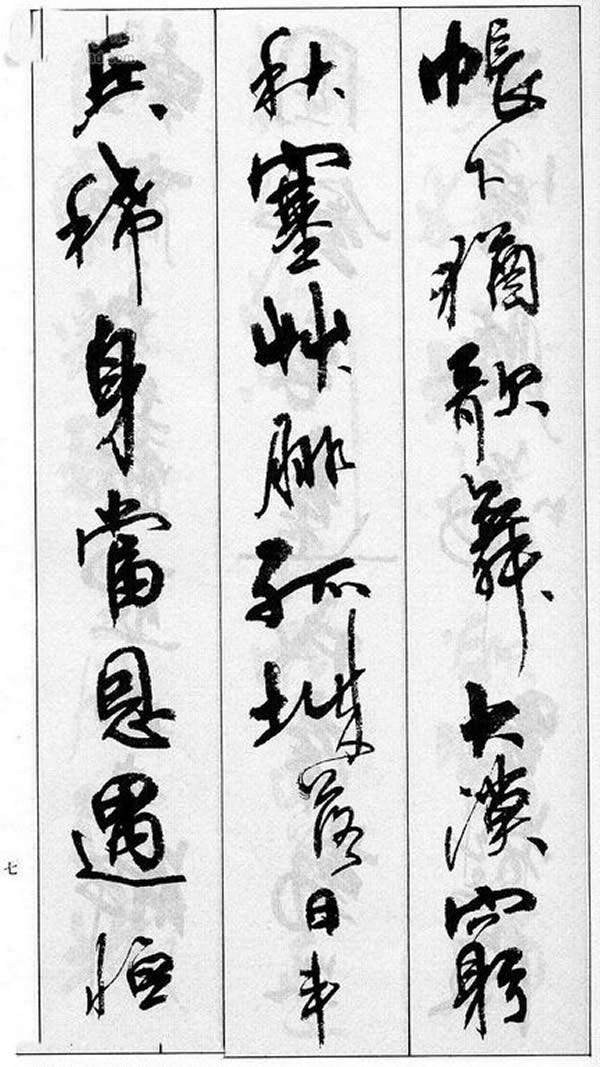 帳下猶歌舞大漠窮
秋塞艸腓孤城落日斗
兵稀身當恩遇恒
七